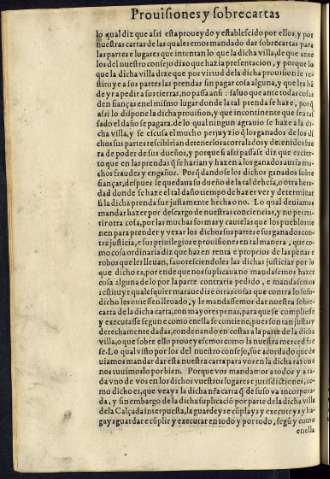 Prouisiones y sobrecartas
lo qual diz que assi esta proueydo y establescido por ellos, y por
nuestras cartas de las quales emos mandado dar sobrecartas para
las partes e lugares que intentan lo que la dicha villa, de que ante
los del nuestro consejo dixo que hazia presentacion, y porque lo
que la dicha villa dize que por virtud de la dicha prouision se re
stituye a sus partes las prendas sin pagar cosa alguna, y que les ha
de yr a pedir a sus tierras, no passa assi: saluo que ante todas cosas
den fianças en el mismo lugar donde la tal prenda se haze, porq̃
assi lo dispone la dicha prouision, y que incontinente que sea tas
sado el daño se pagara, de lo qual ningun agrauio se haze a la di
cha villa, y se escusa el mucho perjuyzio q̃ los ganados de los di
chos sus partes rescibirian detenerlos acorralados y detenidos fue
ra de poder de sus dueños, y porque si assi passasse
to que en las prendas q̃ se harian y hazen a los ganados auria mu-
chos fraudes y engaños. Porq̃ dandose los dichos ganados sobre
fianças, despues le quedaua su dueño de la tal dehesa, o otra here
dad donde se haze el tal daño tiempo de hazer ver y determinar
si la dicha prenda fue justamente hecha o no. Lo qual deuiamos
mandar hazer por descargo de nuestras conciencias, y no permi-
tir otra cosa, por las muchas formas y cautelas que los pueblos tie
nen para prender y vexar los dichos sus partes e sus ganados con
tra justicia, e sus priuilegios e prouisiones en tal manera, que co-
mo cosa ordinaria diz que hazen renta e proprios de las penas e
robos que les lleuan, fauoresciendoles las dichas justicias por lo
que dicho es, por ende que nos suplicaua no mandassemos hazer
cosa alguna de lo por la parte contraria pedido, e mandassemos
restituyr e qualesquier marauedis e otras cosas que contra lo suso
dicho les vuiessen lleuado, y le mandassemos dar nuestra sobre
carta de la dicha carta, con mayores penas, para que se compliesse
y executasse segun e como en ella se contiene, pues son tan justas y
derechamente dadas, condenando en costas a la parte de la dicha
villa, o que sobre ello proueyessemos como la nuestra merced fue
se. Lo qual visto por los del nuestro consejo, fue acordado que de
uiamos mandar dar esta nuestra carta para vos en la dicha razon e
nos tuuimoslo por bien. Porque vos mandamos a todos y a ca
da vno de vos en los dichos vuestros lugares e jurisdictiones, co-
mo dicho es, que veays la dicha n̄ra carta q̃ de suso va incorpora
da, y sin embargo de la dicha suplicacion por parte de la dicha villa
de la Calçada interpuesta, la guardeys e cũplays y executeys y ha
gays guardar e cũplir y executar en todo y por todo, segũ y como
en ella